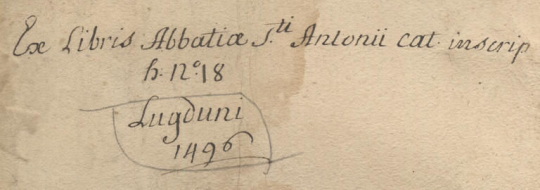 Ex Libris Abbatiæ S.ti Antonii cat. inscrip
h. n.o 18
Lugduni
1496